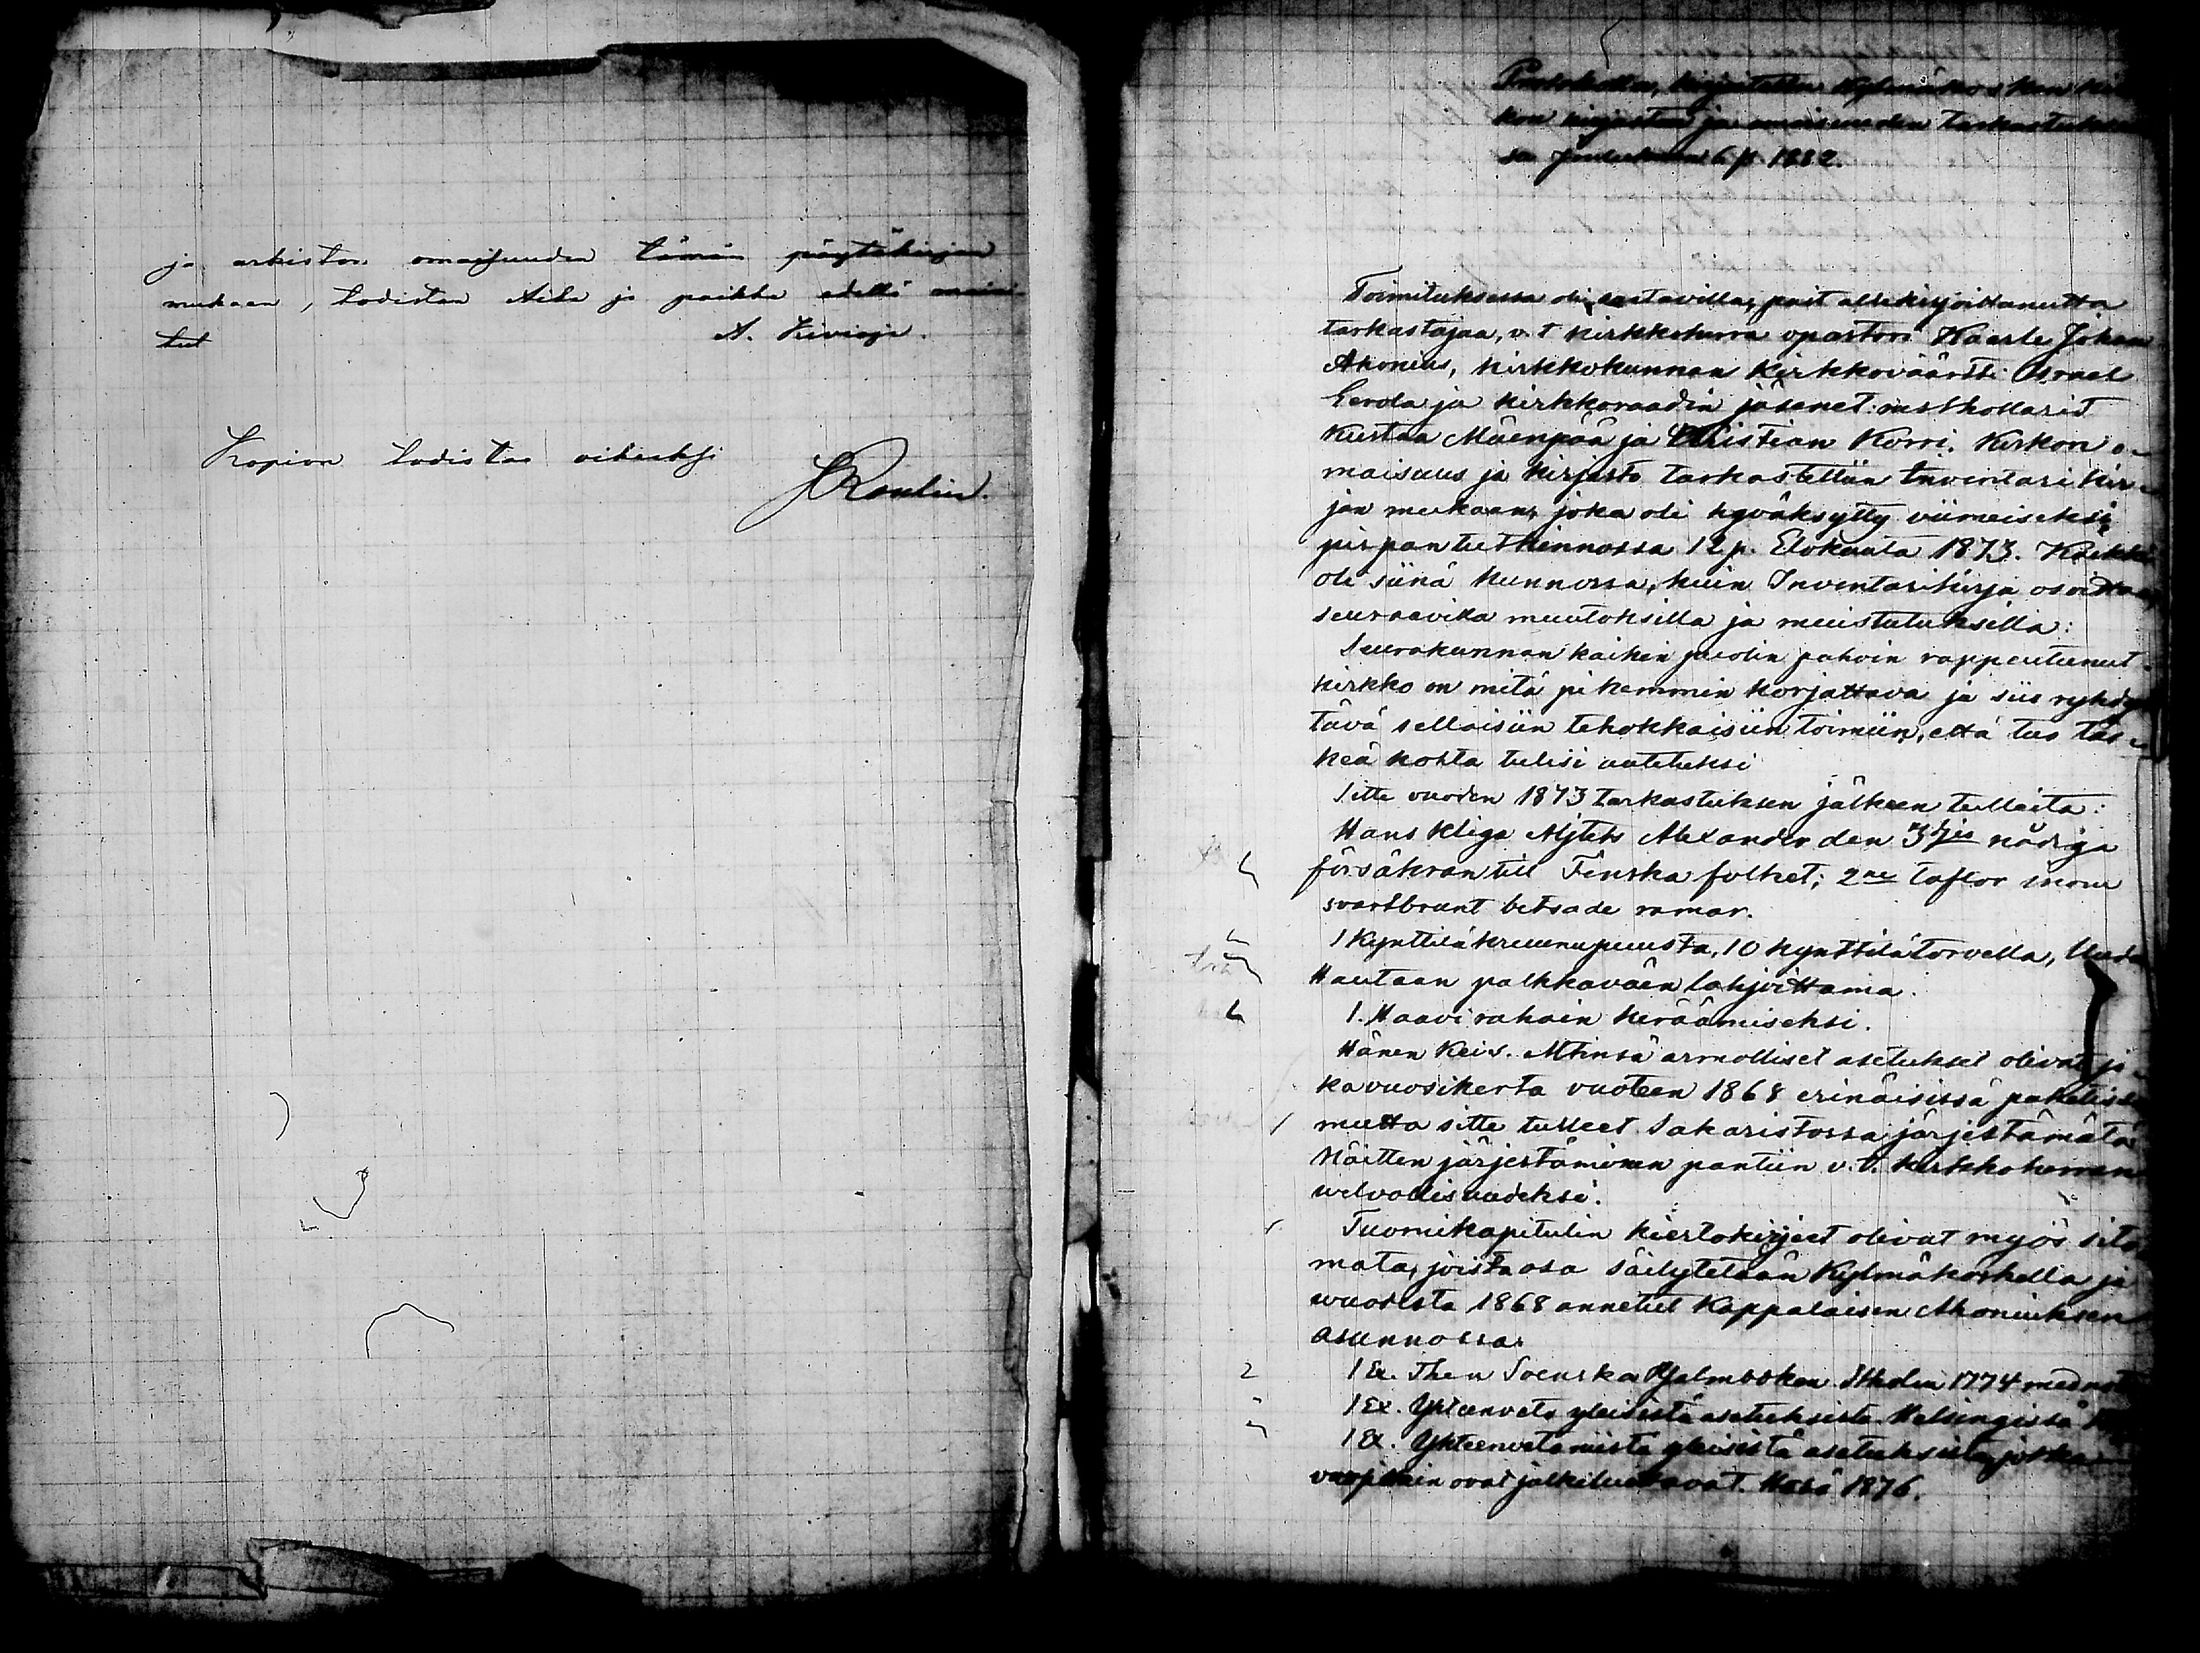 ja arkiston omaisuuden tämän pöytäkirjan
mukaan, todistan Aika ja paikka edellä maini-
tut
A. Kivioja.
Kopion todistaa oikeaksi
Protokolla, kirjoitettu Kylmäkosken kir
kon kirjaston ja omaisuuden tarkastukses
sa Joulukuun 6 p 1882.
Toimituksessa oli saatavilla, pait allekirjoittanutta
tarkastajaa, v.t kirkkoherra pastori Kaarle Johan
Ahonius, kirkkokunnan Kirkkoväärtti Israel
Eerola ja kirkkoraadin jäsenet: rusthollarit
Kustaa Mäenpää ja Christian Korri. Kirkon o-
maisuus ja kirjasto tarkastettiin Inventari kir-
jan mukaan, joka oli hyväksytty viimeiseksi
pispantutkinnossa 12 p. Elokuuta 1873. Kaikki
oli siinä kunnossa, kuin Inventarikirja osoittaa
seuraavilla muutoksilla ja muistutuksilla:
Seurakunnan kaikin puolin pahoin rappeutunut
kirkko on mitä pikemmin korjattava ja siis ryhdyt
tävä sellaisiin tehokkaisiin toimiin, että tuo tär-
keä kohta tulisi autetuksi
Sitte vuoden 1873 tarkastuksen jälkeen tulleita:
Hans Kliga Mjtets Alexander den 3djes nådiga
försäkran till Finska folket; 2ne taflor inom
svartbrunt betsade ramar.
1 Kynttiläkruunu puusta, 10 kynttilätorvella, Uuden
Hautaan palkkaväen lahjoittama.
1. Haavi rahain keräämiseksi.
Hänen Keis. Mtinsä armolliset asetukset olivat jo-
ka vuosikerta vuoteen 1868 erinäisissä paketissa
mutta sitte tulleet Sakaristossa järjestämätä
Näitten järjestäminen pantiin v.t. kirkkoherran
welvollisuudeksi.
Tuomikapitulin kiertokirjeet olivat myös sito
mata, joista osa säilytetään Kylmäkoskella ja
wuodesta 1868 annetut Kappalaisen Ahoniuksen
asunnossa.
1 Ex. Then Svenska Psalmboken Stholm 1774 med
1 Ex. Yhteenveto yleisistä asetuksista Helsingissä
1 Ex. Yhteenvetamista yleisistä asetuksista, jotka
vuosittain ovat julkiluettavat. H:ssä 1876.